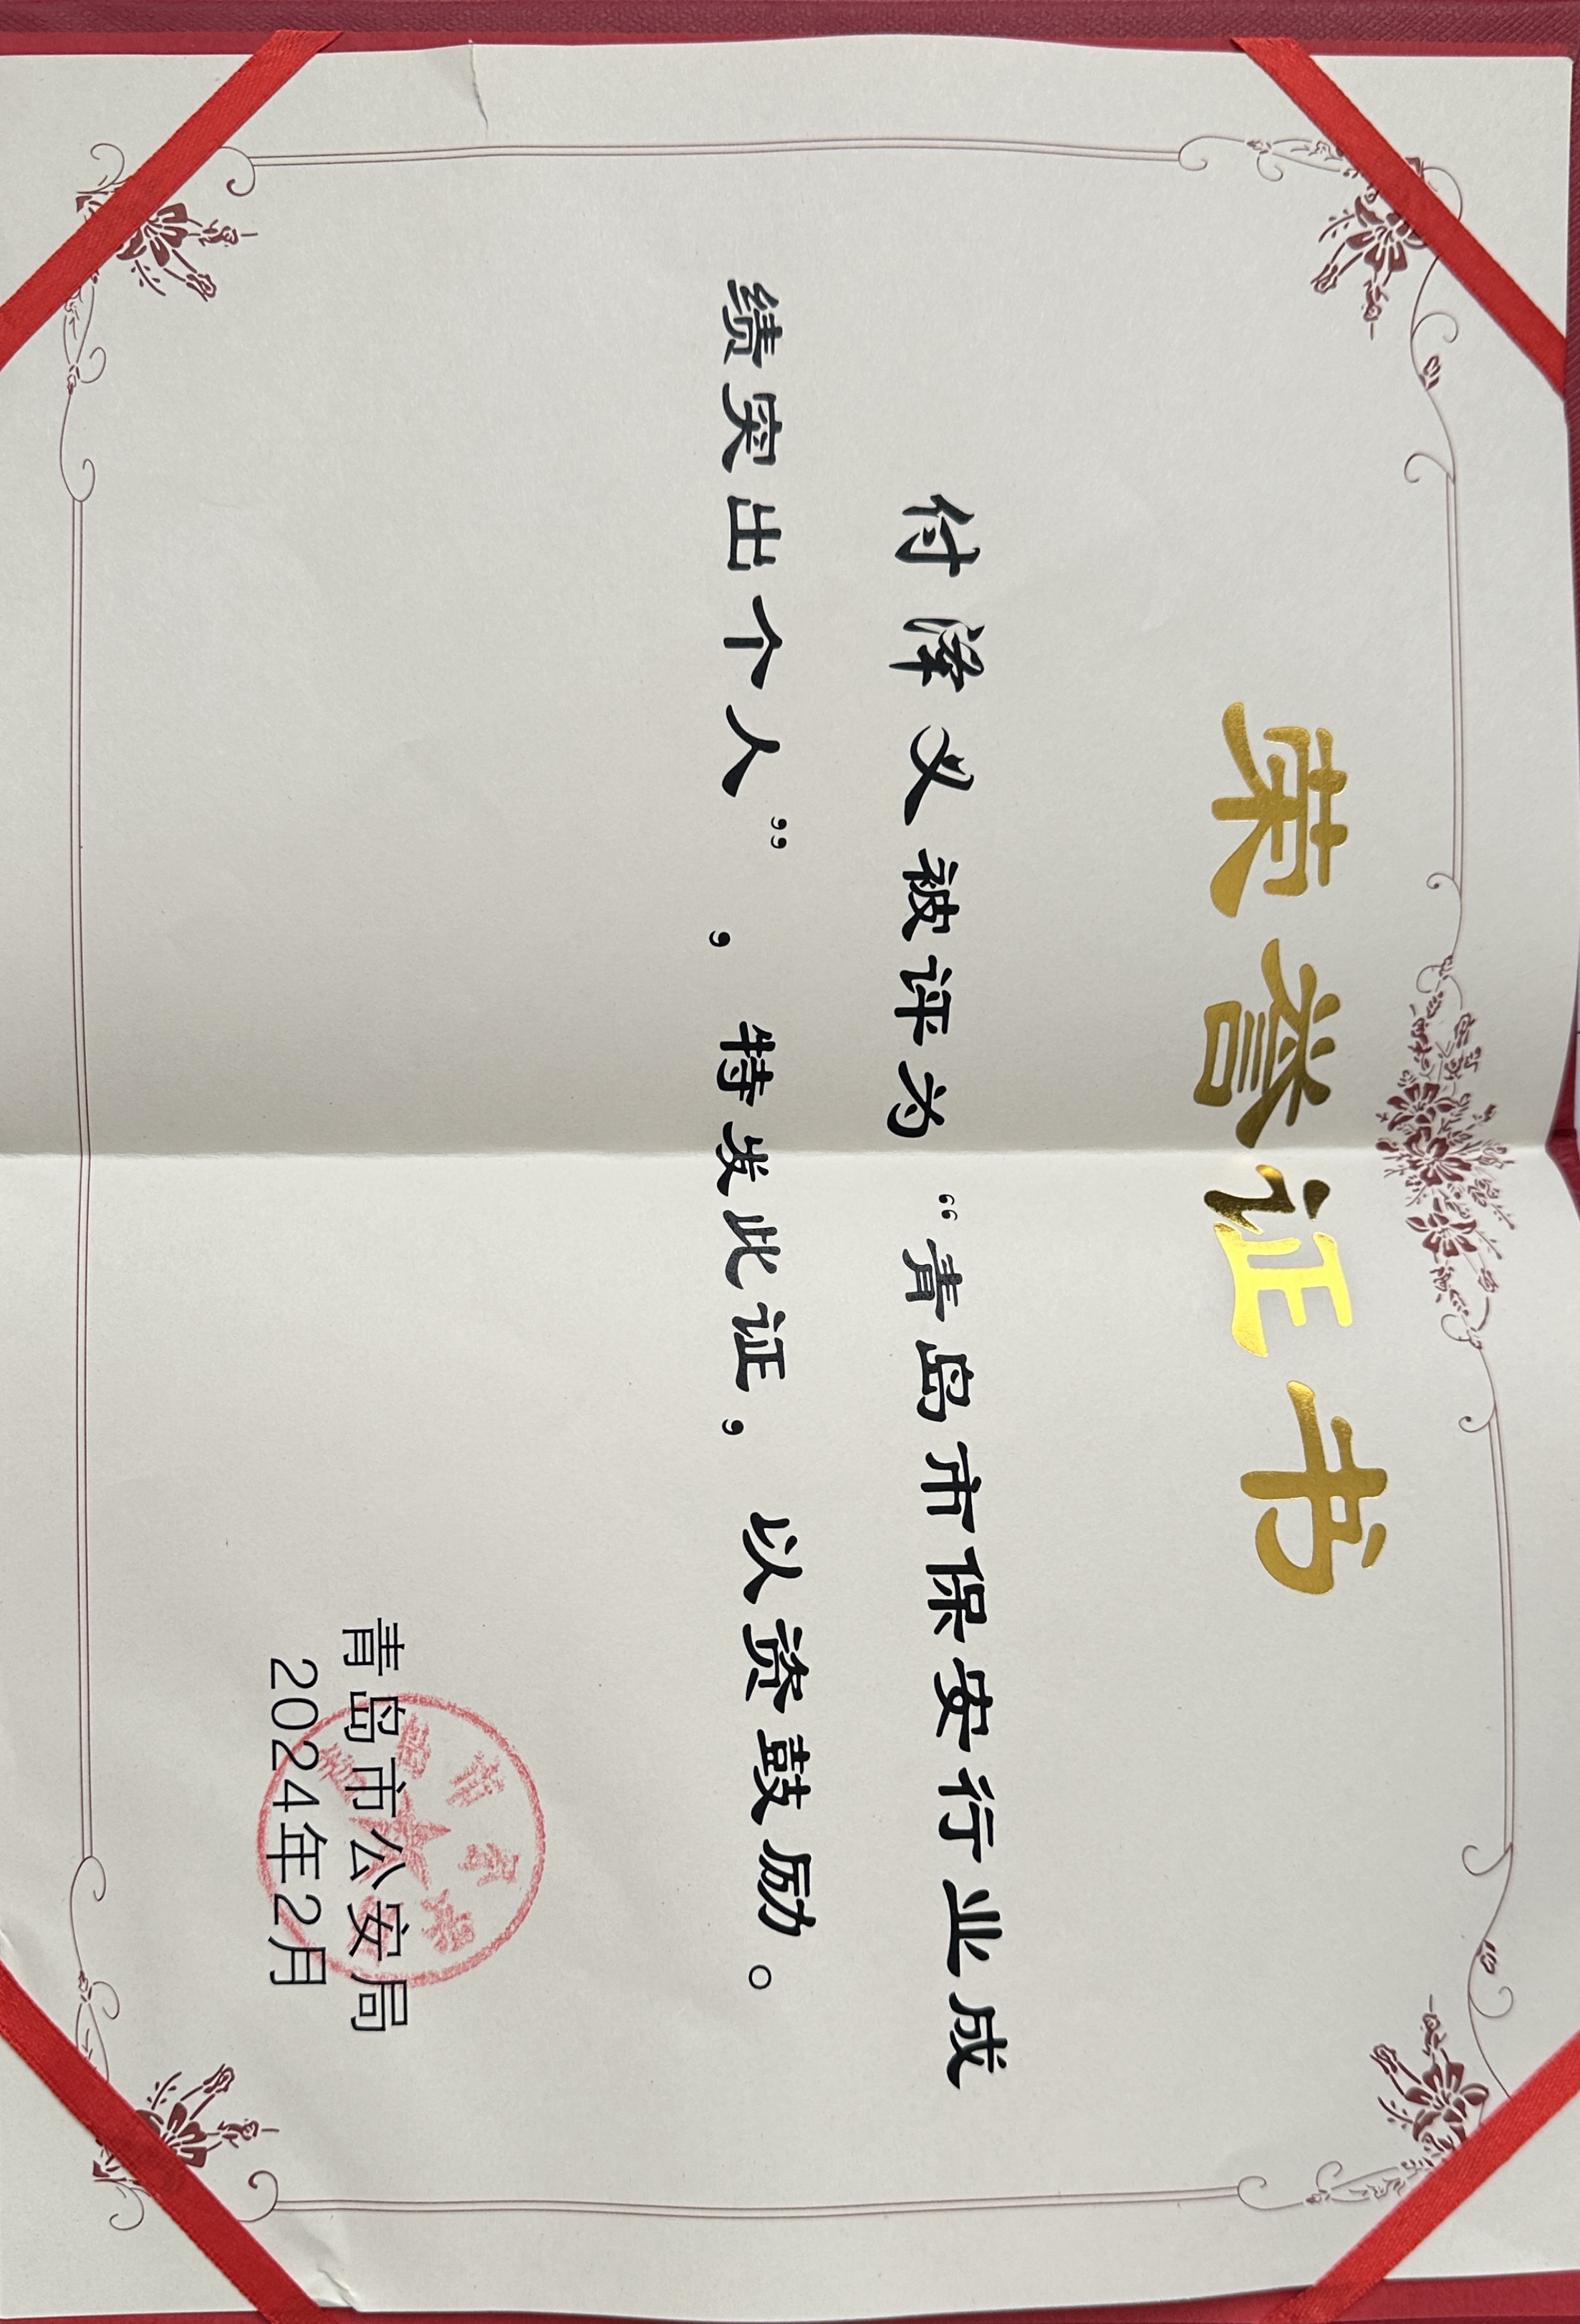 荣誉证书
付泽义被评为“青岛市保安行业成
绩突出个人”，特发此证，以资鼓励。
青岛市公安局
2024年2月